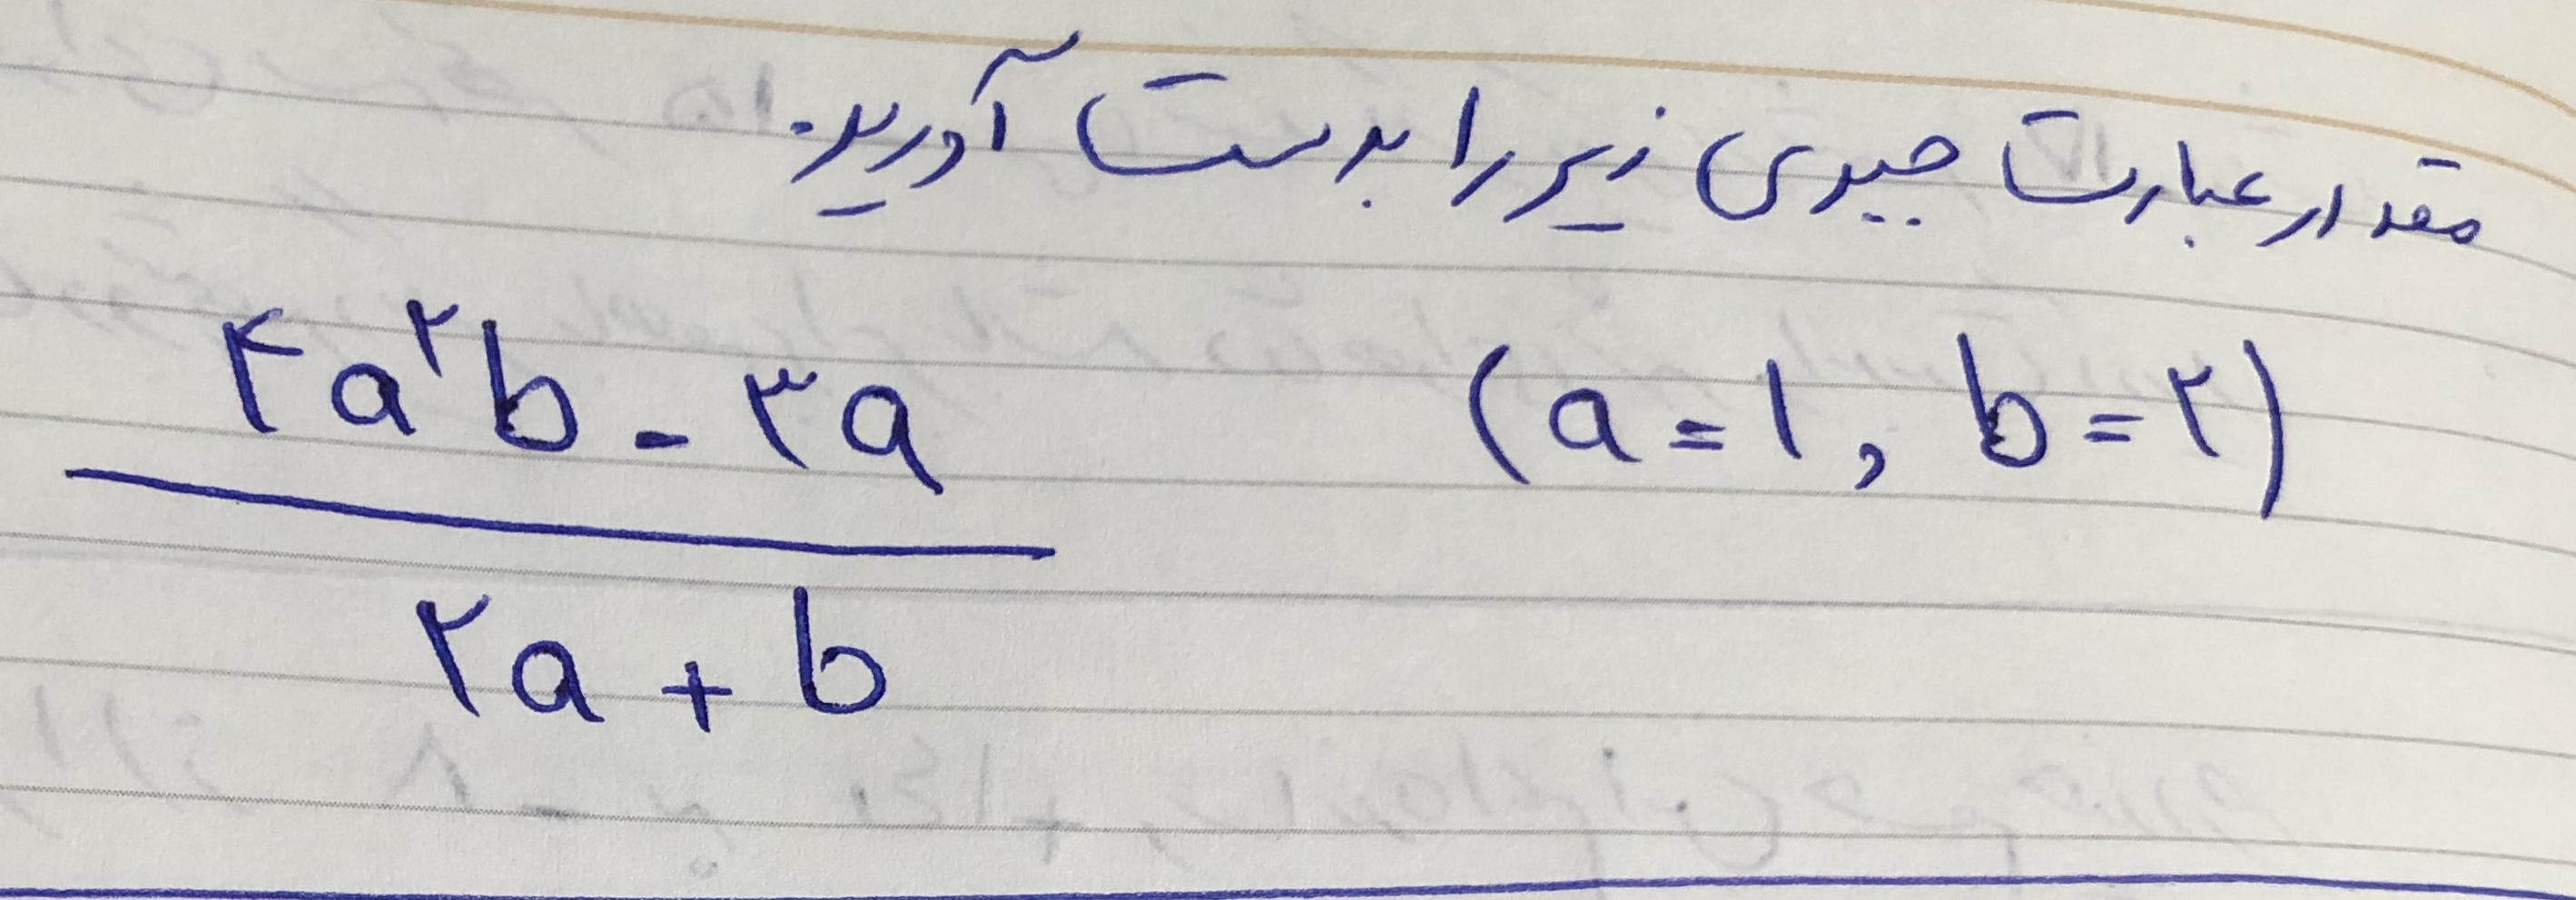 مقدار عبارت جبری زیر را بدست آورید.
۴a²b - ۳a (a = ۱ , b = ۲)
۲a + b